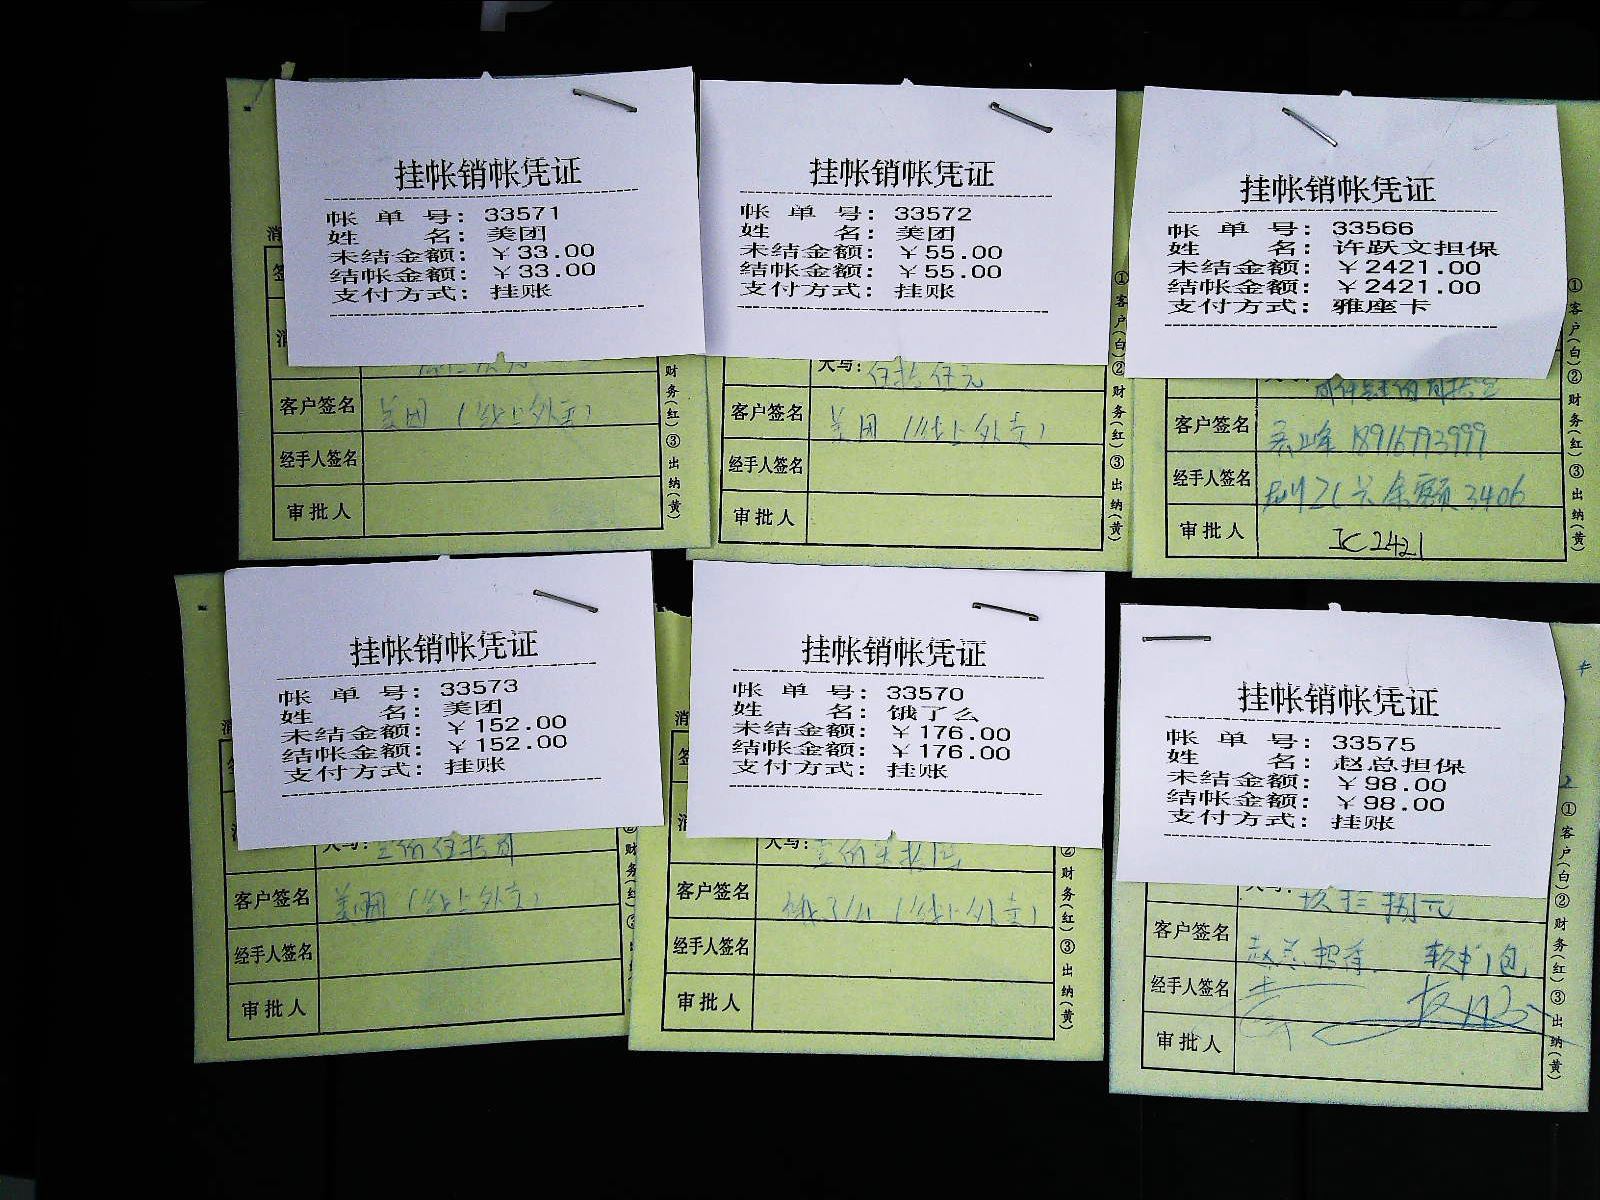 挂帐销帐凭证
帐单号：33571
姓名：美团
未结金额：￥33.00
结帐金额：￥33.00
支付方式：挂账
客户签名 美团（线上外卖）
经手人签名
审批人
财务(红)③出纳(黄)
挂帐销帐凭证
帐单号：33572
姓名：美团
未结金额：￥55.00
结帐金额：￥55.00
支付方式：挂账
大写：伍拾伍元
客户签名 美团（线上外卖）
经手人签名
审批人
①客户(白)②财务(红)③出纳(黄)
挂帐销帐凭证
帐单号：33566
姓名：许跃文担保
未结金额：￥2421.00
结帐金额：￥2421.00
支付方式：雅座卡
客户签名 18916793999
经手人签名 余额3406
审批人 IC2421
①客户(白)②财务(红)③出纳(黄)
挂帐销帐凭证
帐单号：33573
姓名：美团
未结金额：￥152.00
结帐金额：￥152.00
支付方式：挂账
大写：
客户签名 美团（线上外卖）
经手人签名
审批人
挂帐销帐凭证
帐单号：33570
姓名：饿了么
未结金额：￥176.00
结帐金额：￥176.00
支付方式：挂账
大写：
客户签名 饿了么（线上外卖）
经手人签名
审批人
②财务(红)③出纳(黄)
挂帐销帐凭证
帐单号：33575
姓名：赵总担保
未结金额：￥98.00
结帐金额：￥98.00
支付方式：挂账
大写：玖拾捌元
客户签名 赵总担保
经手人签名
审批人
①客户(白)②财务(红)③出纳(黄)